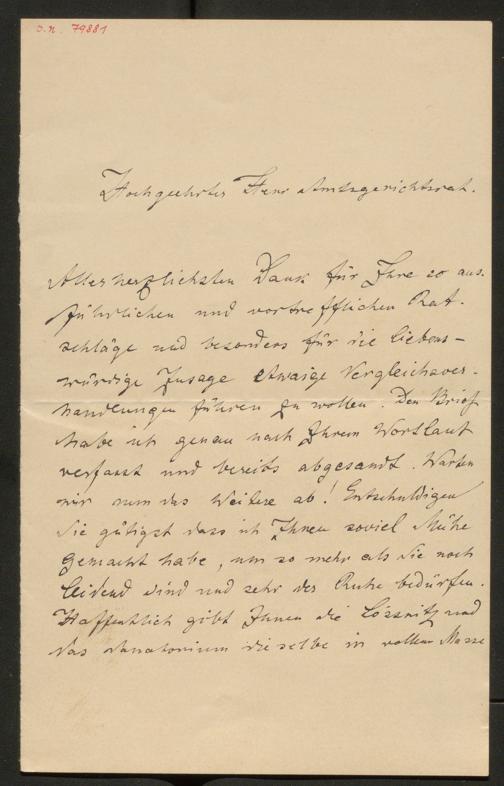 O.N. 79881
Hochgeehrter Herr Amtsgerichtsrat.
Allerherzlichsten Dank für Ihre so aus-
führlichen und vortrefflichen Rat-
schläge und besonders für die liebens-
würdige Zusage etwaige Vergleichsver-
handlungen führen zu wollen. Den Brief
habe ich genau nach Ihrem Wortlaut
verfasst und bereits abgesandt. Warten
wir nun das Weitere ab! Entschuldigen
Sie gütigst dass ich Ihnen soviel Mühe
gemacht habe, um so mehr als Sie noch
leidend sind und sehr der Ruhe bedürfen.
Hoffentlich gibt Ihnen die Lössnitz und
das Sanatorium dieselbe in vollem Masse